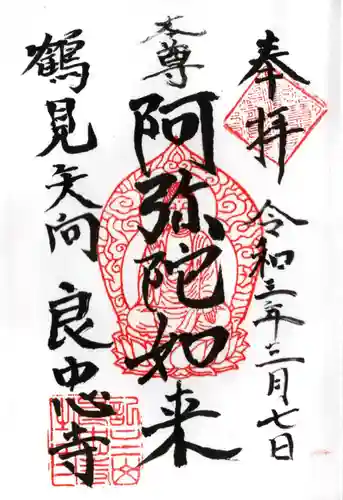 奉拝
令和三年三月七日
本尊
阿弥陀如来
鶴見矢向
良忠寺